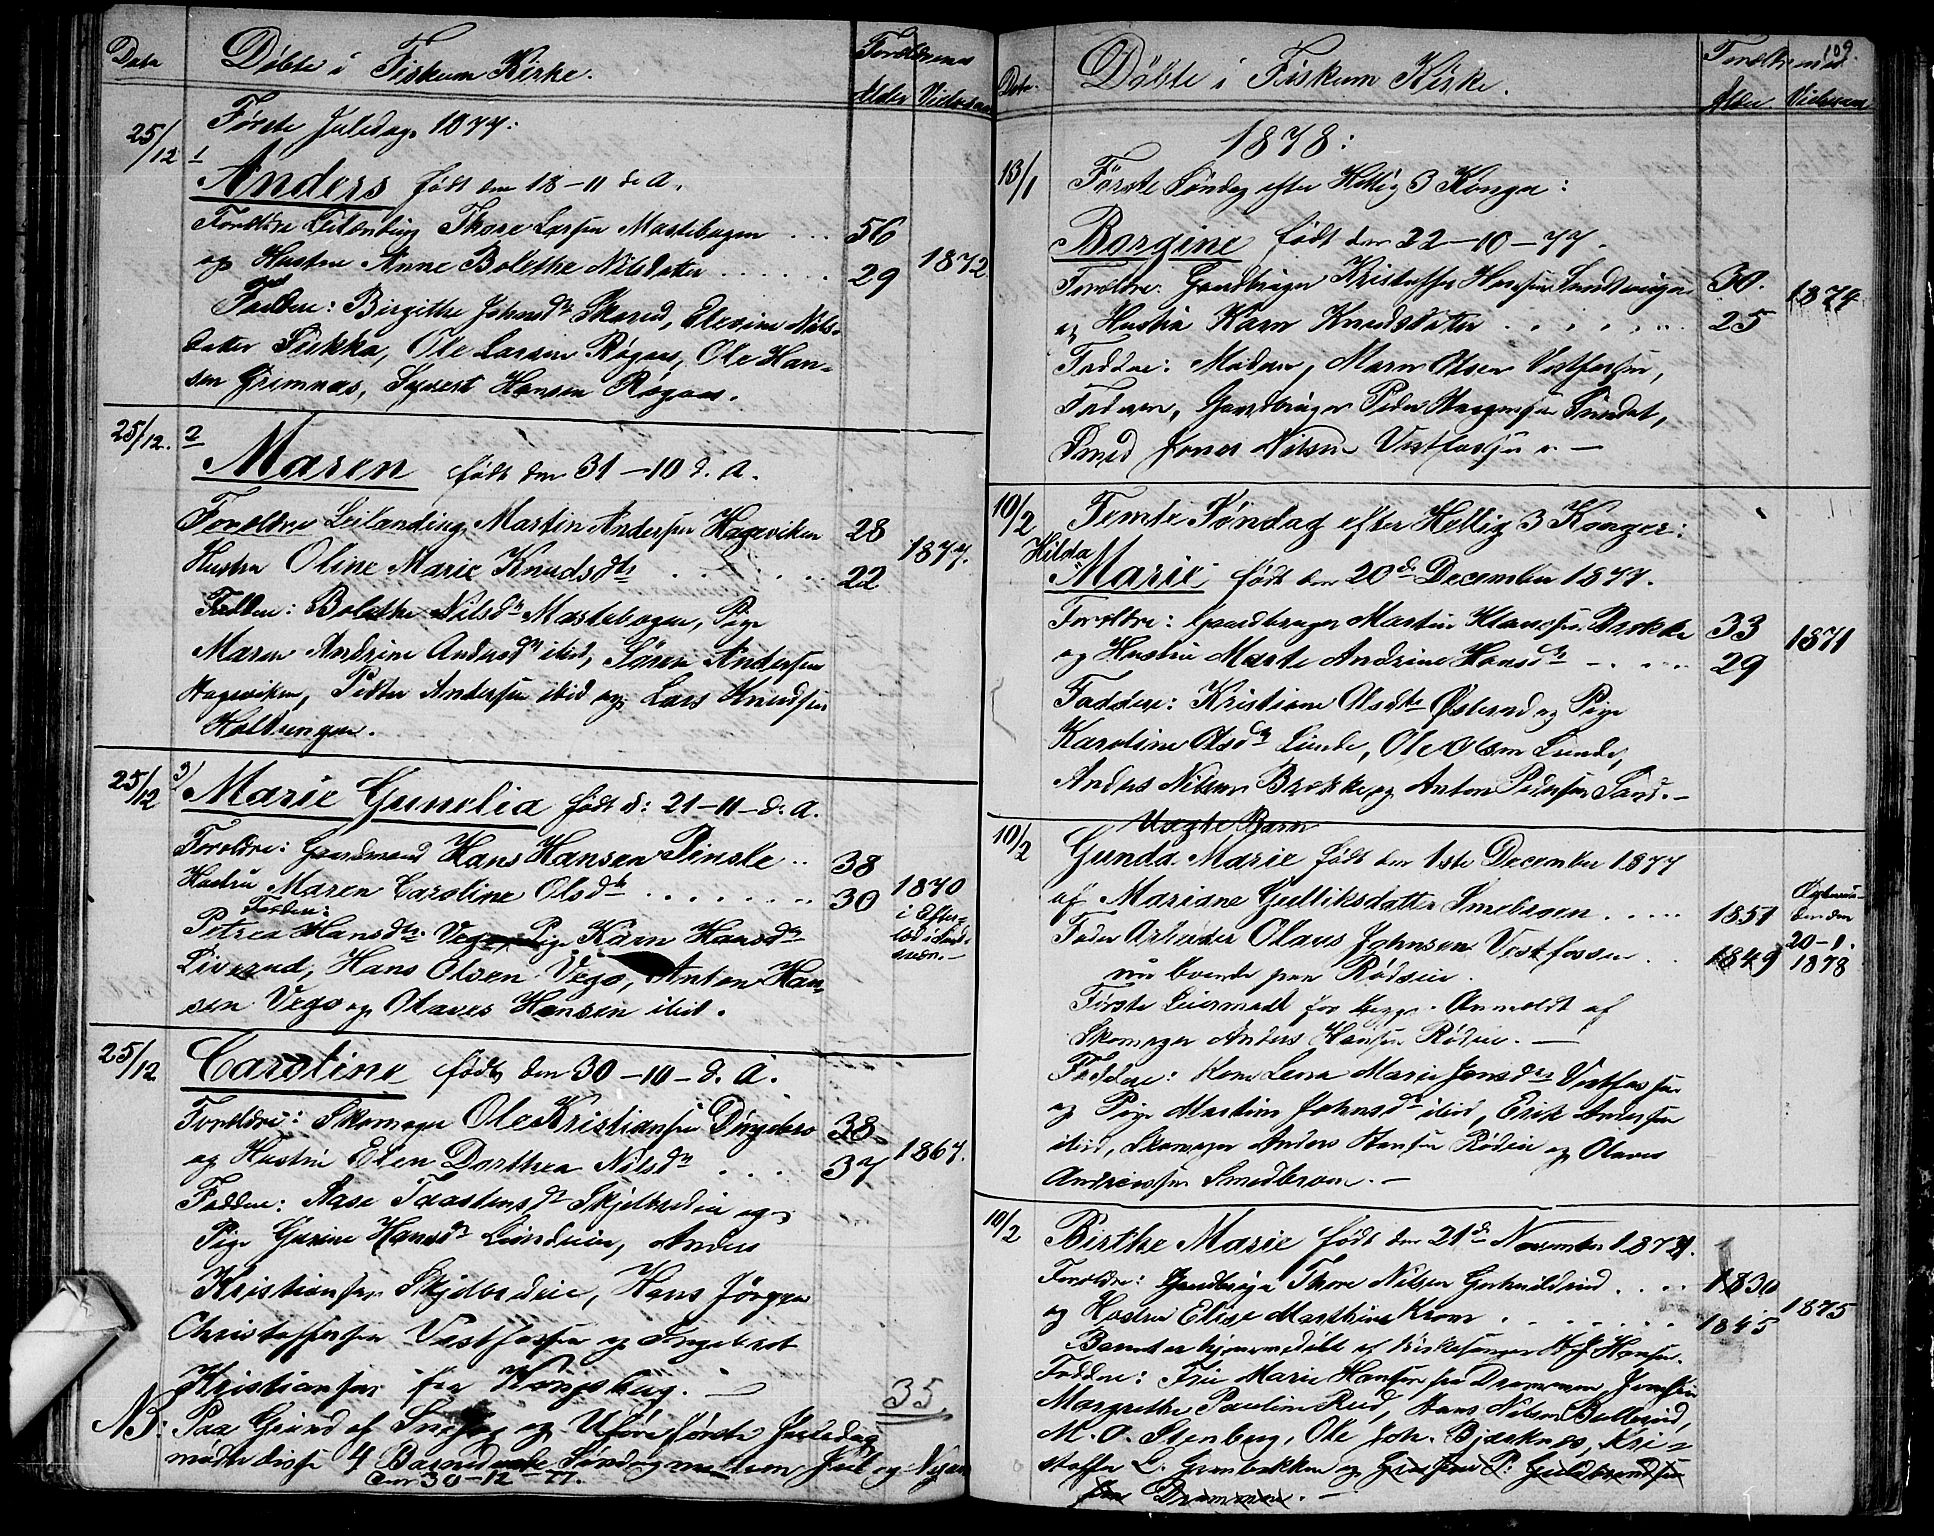 Data Døbte i Fiskum Kirke. Forældrenes
Alder Vielsesaar
Første Juledag 1877:
25/12 1
Anders født den 18-11 d. A.
Forældre Leilænding Thore Larsen Mastebogen ... 56
og Hustru Anne Bolethe Nilsdatter ...... 29 1872
Faddere: Birgithe Johnsdtr Skarud, Elevine Nils-
datter Ole Larsen Røgaas, Ole Han-
sen Grimnæs, Syvert Hansen Røgaas.
25/12. 2
Maren født den 31-10 d. A.
Forældre Leilænding Martin Andersen Hageviken 28
Hustru Oline Marie Knudsdtr ..... 22 1877.
Faddere: Bolethe Nilsdtr Mastebogen, Pige
Maren Andrine Andersdtr ibid, Søren Andersen
Hageviken, Petter Andersen ibid og Lars Knudsen
Holtungen.
25/12 3)
Marie Gunelia født d: 21-11-d. A.
Forældre: Gaardmand Hans Hansen Pinsle .. 38
Hustru Maren Caroline Olsdtr ....... 30 1870
Faddere:
Petrea Hansdtr. Vego, Pige Karn Hansdtr
Liverud, Hans Olsen Vego, Anton Han-
sen Vego og Olaves Hansen ibid.
25/12
Caroline født den 30-10-d. A.
Forældre: Skomager Ole Kristiansen Dyngebro 38
og Hustru Elen Dorthea Nilsdtr .... 37 1867.
Faddere: Aase Taastensdtr Skjelbredeie og
Pige Gurine Hansdtr Lundeie, Anders
Kristiansen Skjelbredeie, Hans Jörgen
Christoffersen Vestfossen og Ingebret
Kristiansen fra Kongsberg. —
35
NB: Paa Grund af Snefog og Uføre første Juledag
mødte disse 4 Børn Søndag mellem Jul og Nyaar
den 30-12-77.
109.
Data. Döbte i Fiskum Kirke. Forældrenes
Alder Vielsesaar
1878:
13/1 Förste Søndag efter Hellig 3 Konger:
Borgine født den 22-10-77.
Forældre: Gaardbruger Kristoffer Hansen 30.
og Hustru Karn Knudsdatter ...... 25 1874
Faddere: Moderen, Maren Olsen Vestfossen,
Faderen, Gaardbruger Peder Haagensen
Smed Jonas Nilsen Vestfossen. —
10/2 Femte Søndag efter Hellig 3 Konger:
Hilda
Marie født den 20de December 1877.
Forældre: Gaardbruger Martin Klausen Brekke 33
og Hustru Marte Andrine Hansdtr ..... 29 1871
Faddere: Kristiane Olsdtr Østerud og Pige
Karoline Olsdtr Lunde, Ole Olsen Lunde,
Anders Nilsen Brekke og Anton Pedersen Sand. —
Uægte Barn
10/2 Gunda Marie født den 1ste December 1877
af Mariane Gulliksdatter Smebogen ..... 1851
Fader Arbeider Olaus Johnsen Vestfossen .. 1849
20-1.
1878
nu boende paa Rødseie.
Første Leiermaal for begge. Anmeldt af
Skomager Anders Hansen Rødseie. —
Faddere: Kone Lena Marie Jonsdtr Vestfossen
og Pige Martine Johnsdtr ibid, Erik Andersen
ibid, Skomager Anders Hansen Rødseie og Olaves
Andreassen Smedbroen. —
10/2 Birthe Marie født den 21de November 1877.
Forældre: Gaardbruger Thore Nilsen Gunhildrud .... 1830
og Hustru Elise Marthine Krom ....... 1845 1875
Barnet er hjemmedøbt af Kirkesanger H J Hansen.
Faddere: Fru Marie Hansen fra Drammen, Jomfru
Margrethe Pauline Rud, Hans Nilsen Bollerud,
M. O. Stenberg, Ole Joh. Bjerknes, Kri-
stoffer L. Grønbakken og P: Guldbrandsen
fra Drammen. —